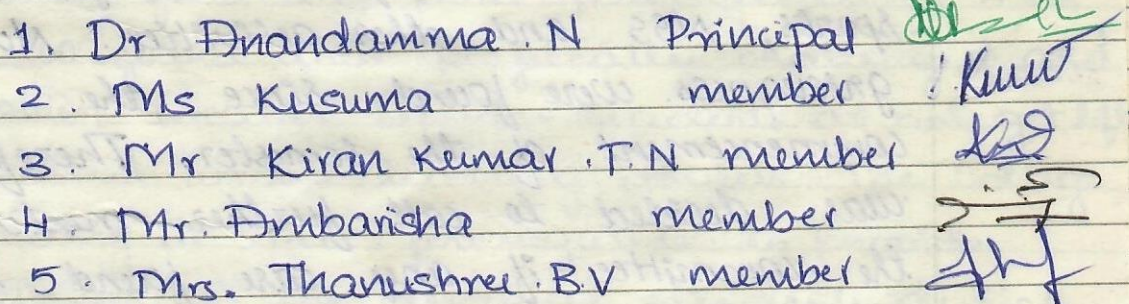 1. Dr Anandamma . N Principal
2. Ms Kusuma member
3. Mr Kiran Kumar .T.N member
4. Mr. Ambarisha member
5. Mrs. Thanushree . B.V member